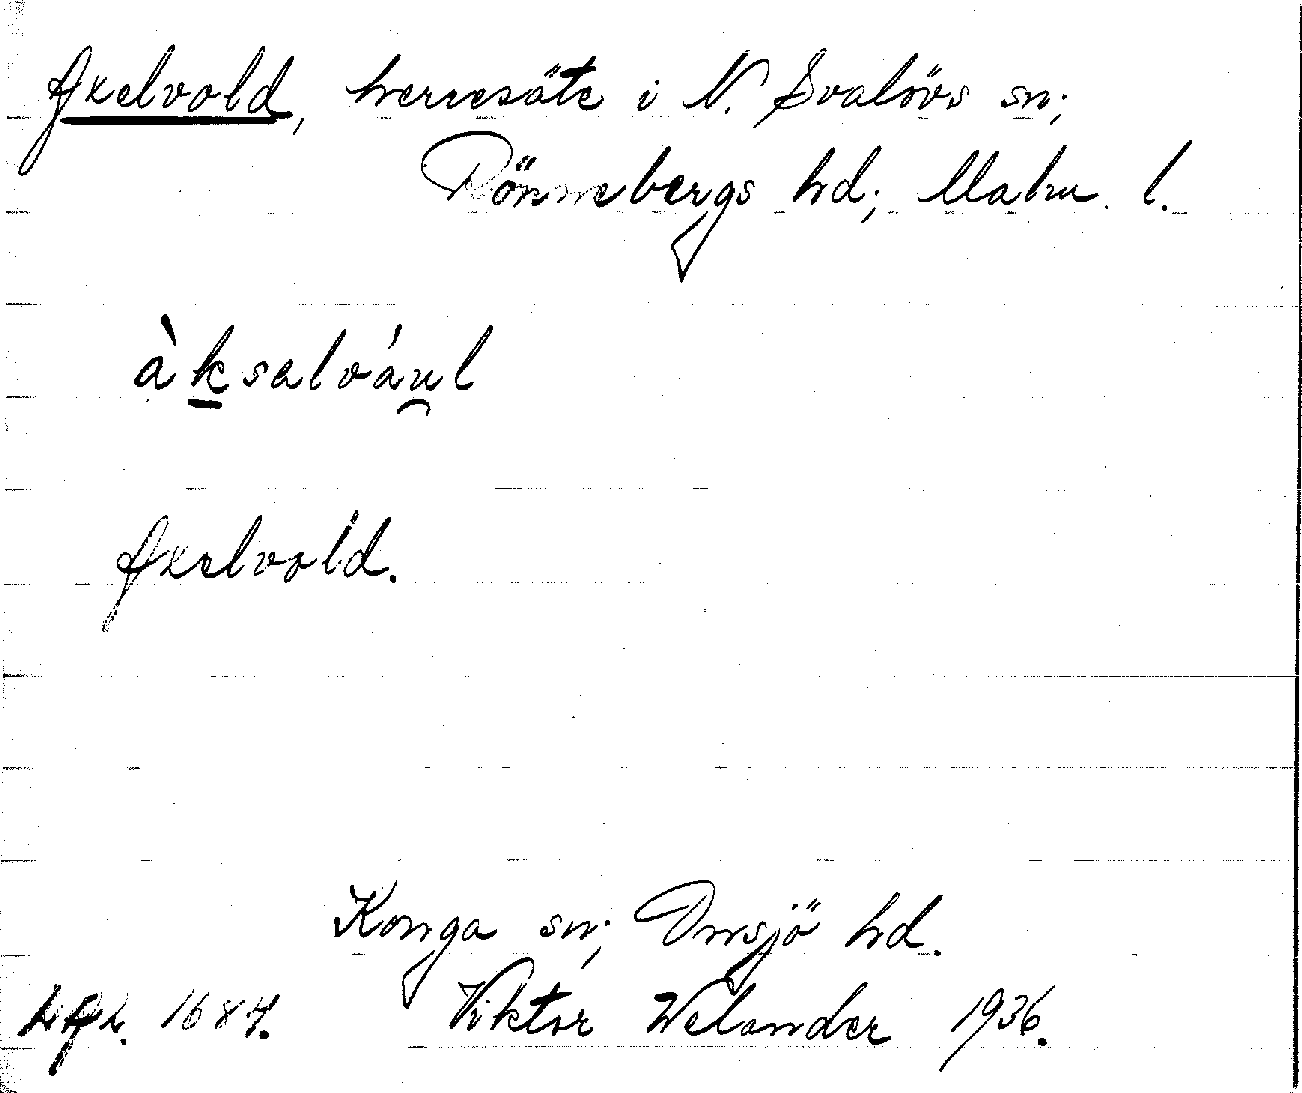 Axelvold, herresäte i N. Svalövs sn;
Rönnebergs hd; Malm. l.
àksalváu̯l
Axelvold.
Konga sn; Onsjö hd.
1687. Viktor Welander 1936.